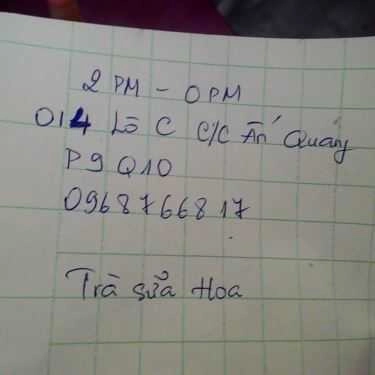 2 PM - 0 PM
014 Lô C C/C Ấn Quang
P9 Q10
0968766817
Trà sữa Hoa